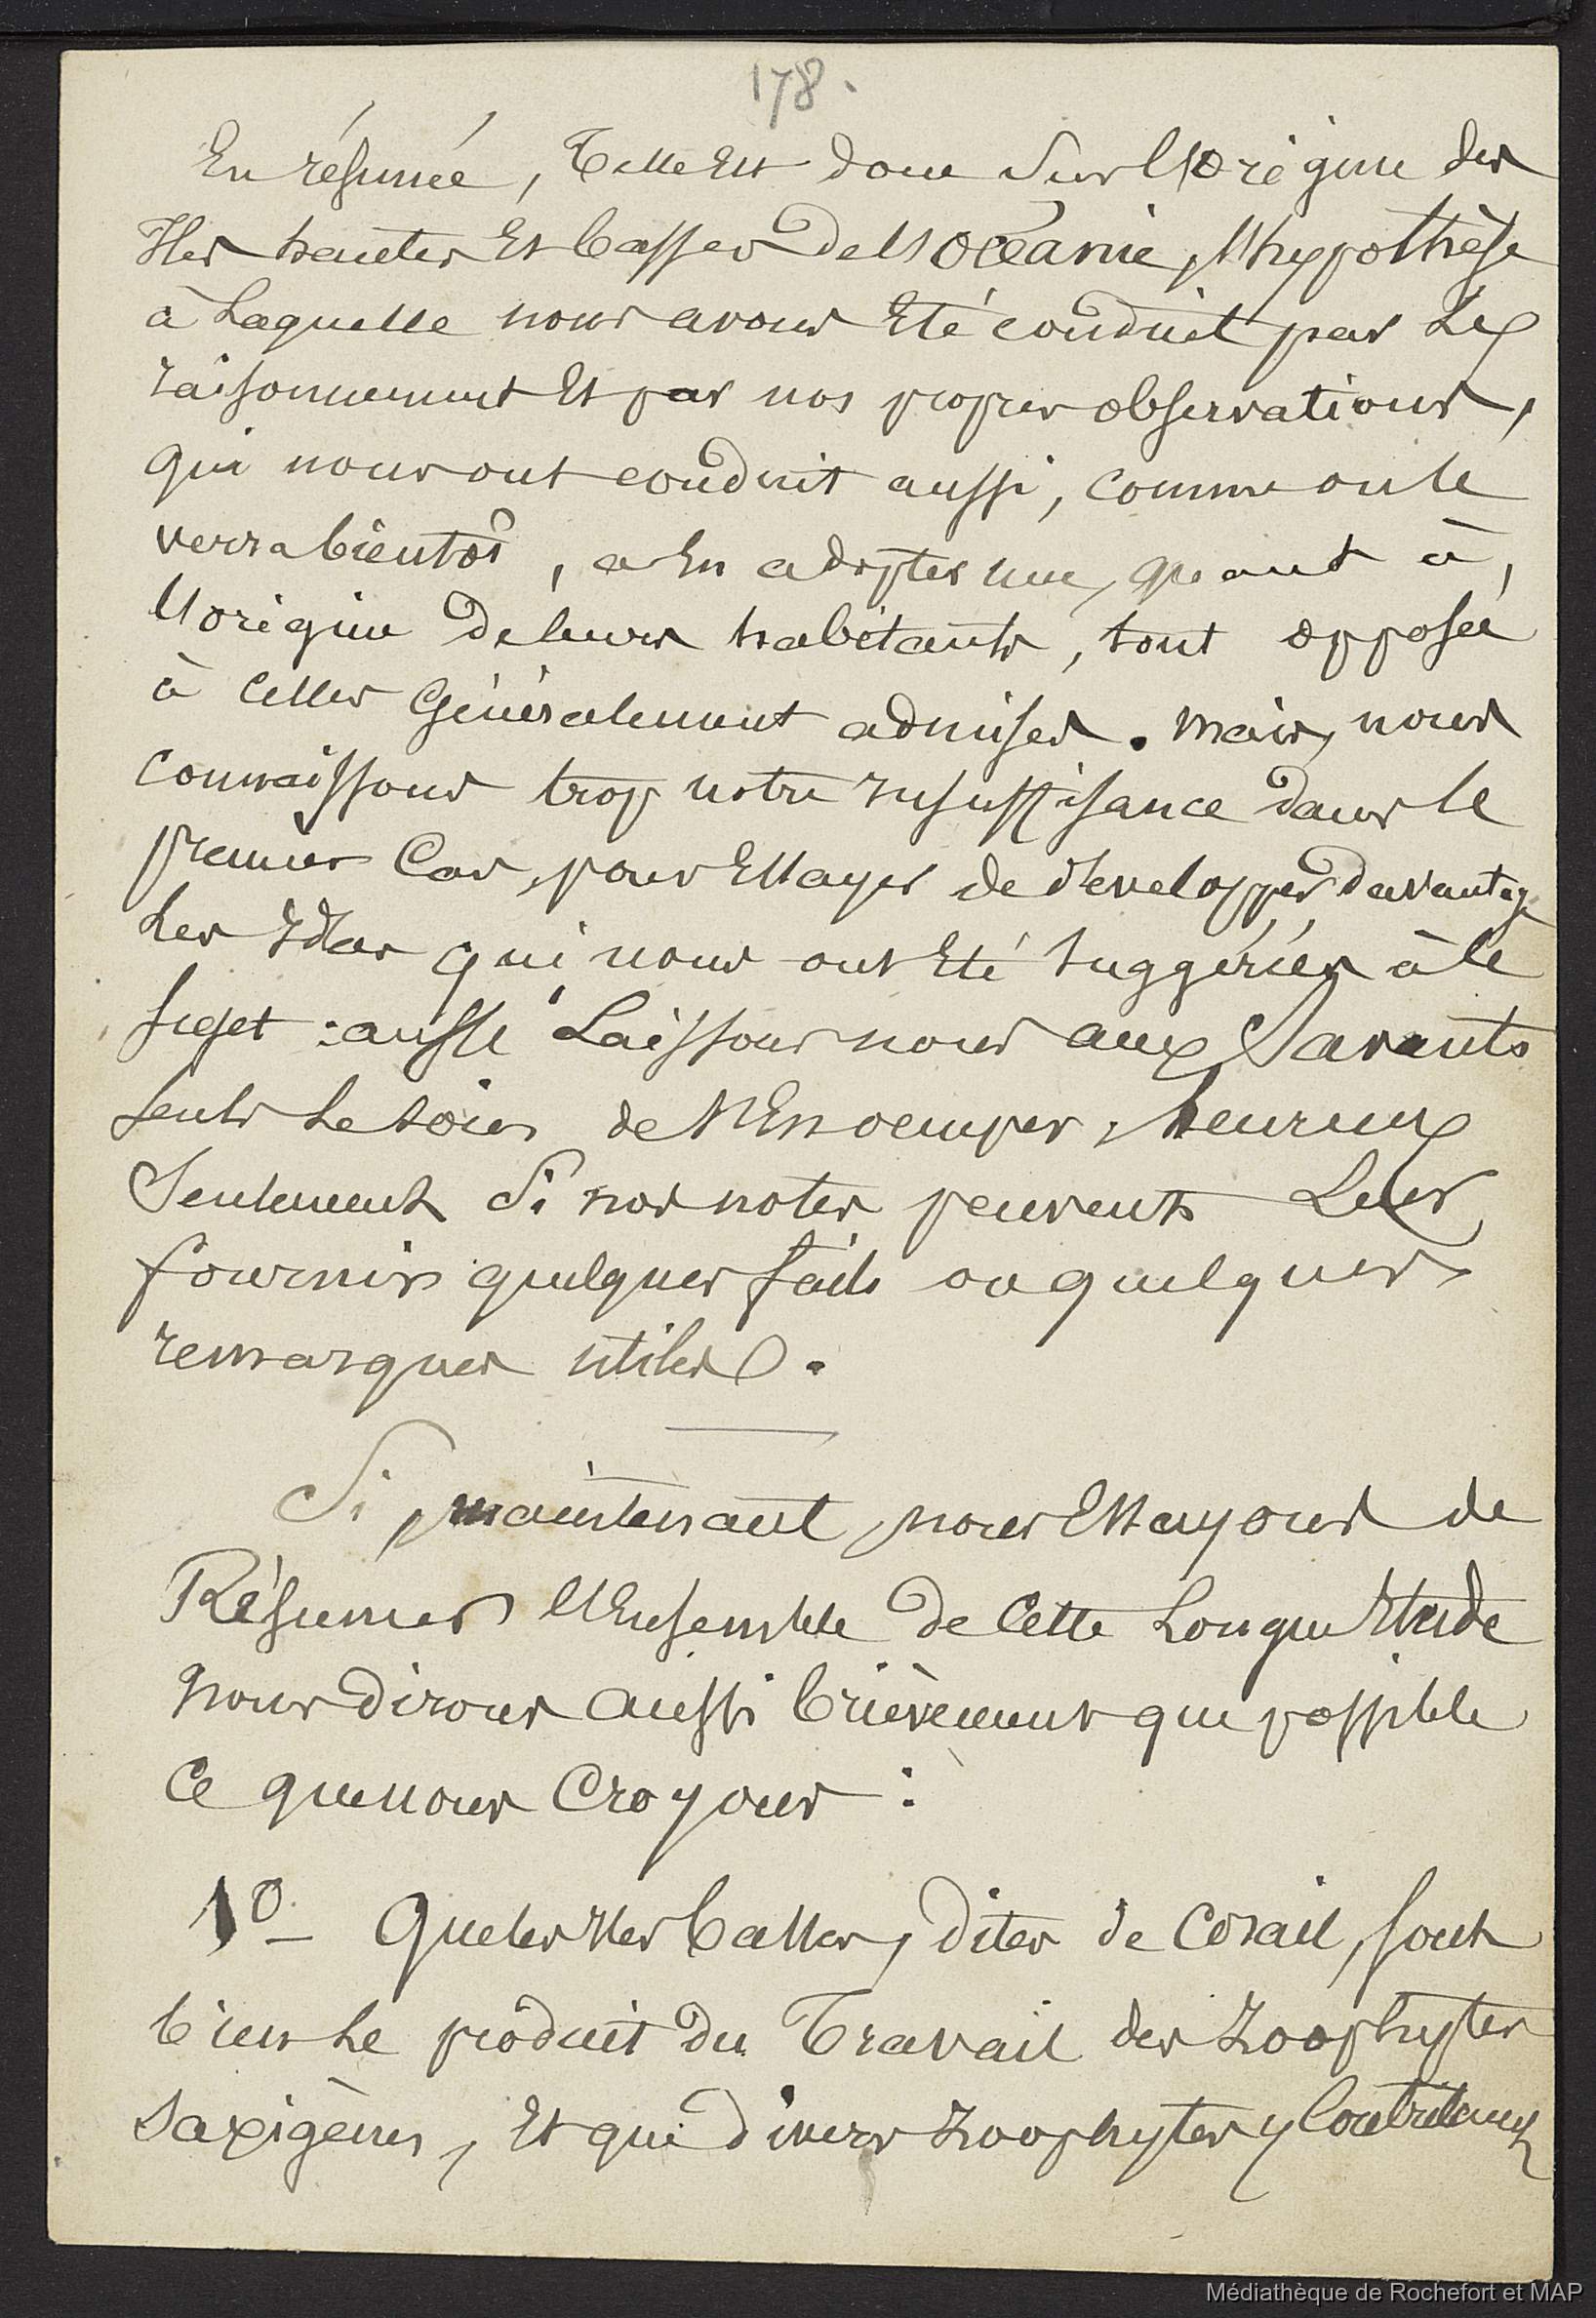 178.
En résumée, telle est donc sur l'origine des
Iles hautes et basses de l'océanie, l'hypothèse
à laquelle nous avons été conduit par les
raisonnement et par nos propres observations,
qui nous ont conduit aussi, comme on le
verra bientôt, a en adopter une, quant à,
l'origine de leurs habitants, tout opposée
à celles généralement admises. mais, nous
connaissons trop notre insuffisance dans le
premier cas, pour essayer de développer davantage
les idées qui nous ont été suggérées à ce
sujet : aussi laissons nous aux Savants
seuls le soin de s'en occuper, heureux
Seulement si nos notes peuvent leur
fournir quelques faits ou quelques
remarques utiles.
Si, maintenant, nous essayons de
Résumer l'ensemble de cette longue étude
nous dirons aussi brièvement que possible
ce que nous croyons :
1º - Que les iles basses, dites de corail, sont
bien le produit du travail des zoophytes
saxigènes, et que divers zoophytes y contribuent
Médiathèque de Rochefort et MAP